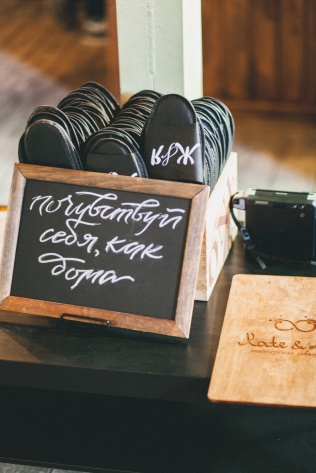 В&Ж
почувствуй
себя, как
дома
Kate &